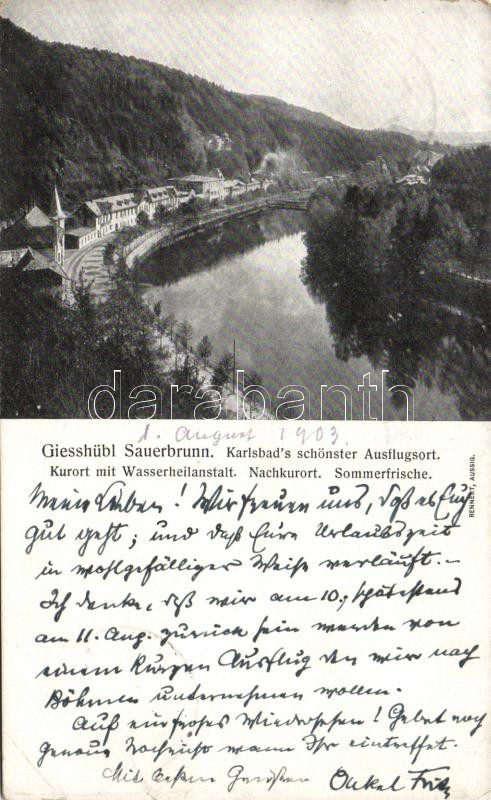 darabanth
1. August 1903.
Giesshübl Sauerbrunn. Karlsbad's schönster Ausflugsort.
Kurort mit Wasserheilanstalt. Nachkurort. Sommerfrische.
RENNERT, AUSSIG.
Meine Lieben! Wir freuen uns, daß es Euch
gut geht; und daß Eure Urlaubszeit
in wohlgefälliger Weise verläuft. –
Ich denke, daß wir am 10., spätestens
am 11. Aug. zurück sein werden von
einem kurzen Ausflug den wir nach
Böhmen unternehmen wollen.
Auf ein frohes Wiedersehen! Gebet noch
genaue Nachricht wann Ihr eintreffet.
Mit besten Grüßen Onkel Fritz